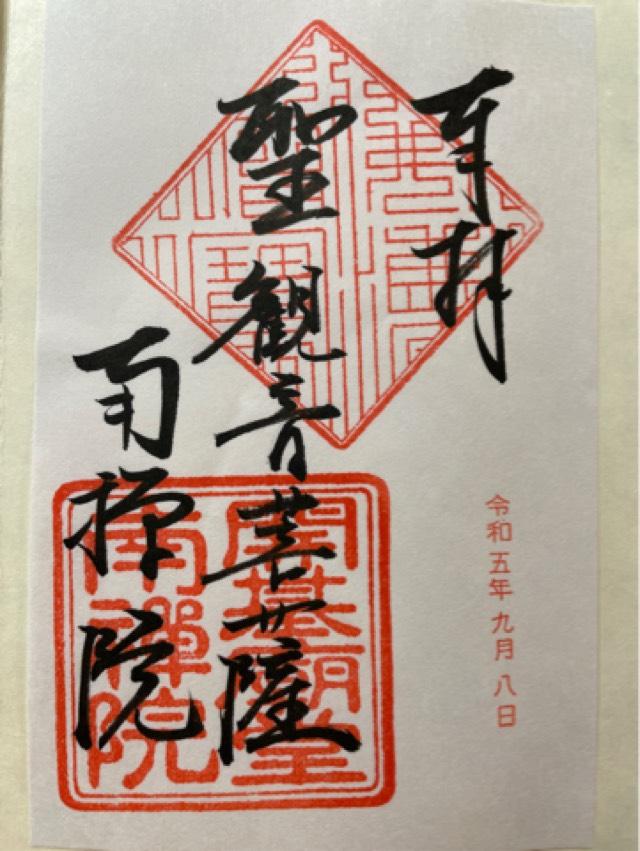 奉拝
令和五年九月八日
聖観音菩薩
南禅院
開基廟堂
南禪院